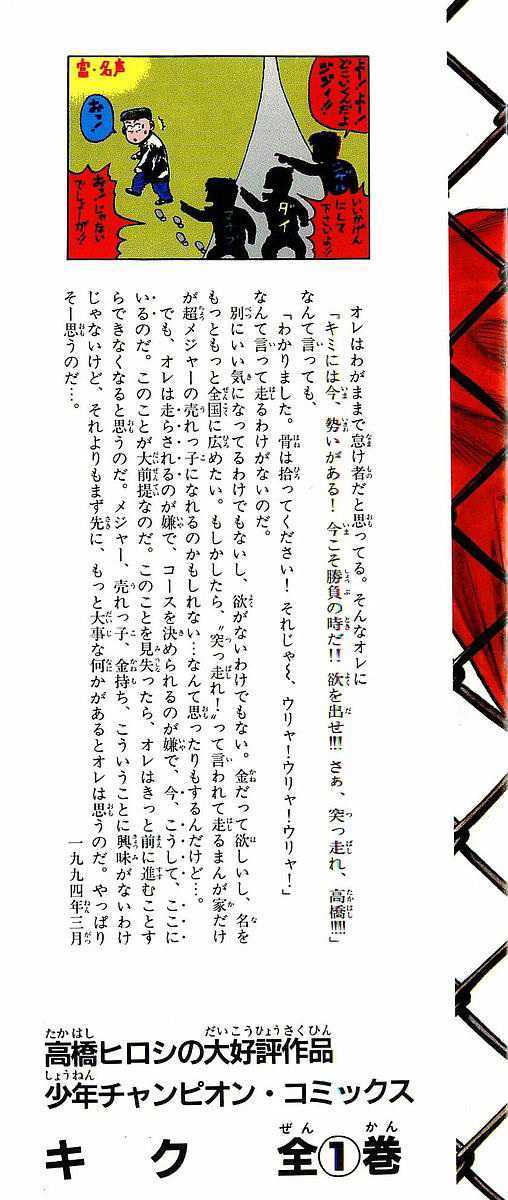 富・名声
よー!よー!
どこいくんだよ
ジジイ!!
いいかげん
にして
下さいよ!!
おっ!
おっじゃない
でしょーが!!
ダイ
オレはわがままで怠け者だと思ってる。そんなオレに
「キミには今、勢いがある!今こそ勝負の時だ!!欲を出せ!!!さぁ、突っ走れ、高橋!!!!」
なんて言っても、
「わかりました。骨は拾ってください!それじゃ〜、ウリャ!ウリャ!ウリャ!」
なんて言って走るわけがないのだ。
別にいい気になってるわけでもないし、欲がないわけでもない。金だって欲しいし、名を
もっともっと全国に広めたい。もしかしたら、〝突っ走れ!〟って言われて走るまんが家だけ
が超メジャーの売れっ子になれるのかもしれない…なんて思ったりもするんだけど…。
でも、オレは走らされるのが嫌で、コースを決められるのが嫌で、今、こうして、ここに
いるのだ。このことが大前提なのだ。このことを見失ったら、オレはきっと前に進むことす
らできなくなると思うのだ。メジャー、売れっ子、金持ち、こういうことに興味がないわけ
じゃないけど、それよりもまず先に、もっと大事な何かがあるとオレは思うのだ。やっぱり
そー思うのだ…。
一九九四年三月
高橋ヒロシの大好評作品
少年チャンピオン・コミックス
キク 全①巻